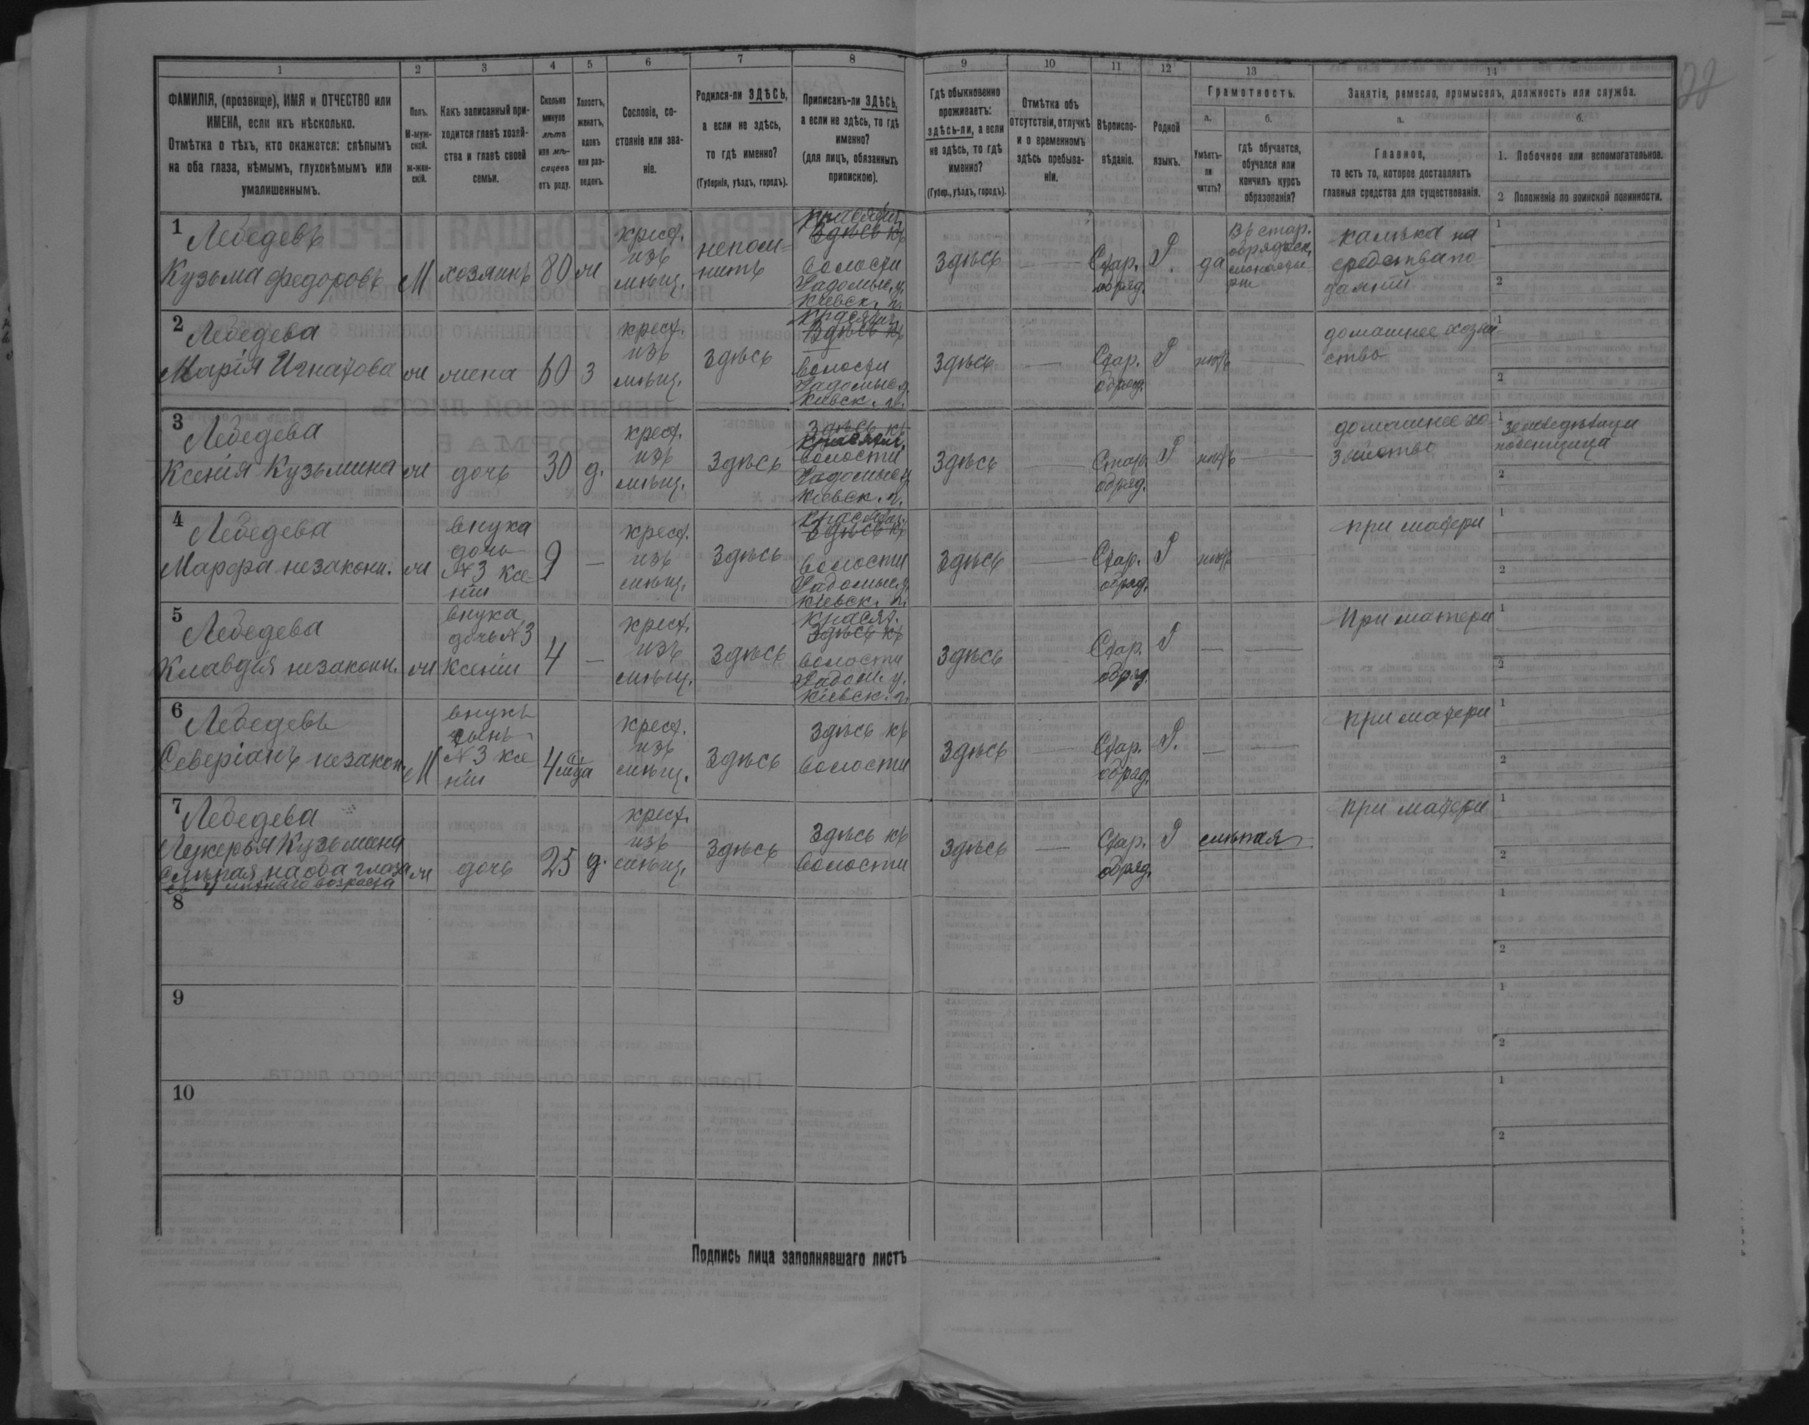 1 2 3 4 5 6 7 8 9 10 11 12 13 14
ФАМИЛІЯ, (прозвище), ИМЯ и ОТЧЕСТВО или
ИМЕНА, если ихъ нѣсколько.
Отмѣтка о тѣхъ, кто окажется: слѣпымъ
на оба глаза, нѣмымъ, глухонѣмымъ или
умалишеннымъ.
Полъ.
М-муж-
ской.
Ж-жен-
скій.
Какъ записанный при-
ходится главѣ хозяй-
ства и главѣ своей
семьи.
Сколько
минуло
лѣтъ
или мѣ-
сяцевъ
отъ роду.
Холостъ,
женатъ,
вдовъ
или раз-
веденъ.
Сословіе, со-
стояніе или зва-
ніе.
Родился-ли ЗДѢСЬ,
а если не здѣсь,
то гдѣ именно?
(Губернія, уѣздъ, городъ).
Приписанъ-ли ЗДѢСЬ,
а если не здѣсь, то гдѣ
именно?
(для лицъ, обязанныхъ
припискою).
Гдѣ обыкновенно
проживаетъ:
здѣсь-ли, а если
не здѣсь, то гдѣ
именно?
(Губер., уѣздъ, городъ).
Отмѣтка объ
отсутствіи, отлучкѣ
и о временномъ
здѣсь пребыва-
ніи.
Вѣроиспо-
вѣданіе.
Родной
языкъ.
Грамотность.
а.
Умѣетъ-
ли
читать?
б.
гдѣ обучается,
обучался или
кончилъ курсъ
образованія?
Занятіе, ремесло, промыселъ, должность или служба.
а.
Главное,
то есть то, которое доставляетъ
главныя средства для существованія.
б.
1. Побочное или вспомогательное.
2 Положеніе по воинской повинности.
1 Лебедевъ
Кузьма Федоровъ
М
хозяинъ
80
ж
крест.
изъ
мѣщ.
непом-
нитъ
Здѣсь къ
волости
Радомыс. у.
Кіевск. г.
Здѣсь
—
Стар.
обряд.
Р.
да
Въ стар.
калѣка на
1
2
2 Лебедева
Марія Игнатова
ж
жена
60
З
крест.
изъ
мѣщ.
Здѣсь
Здѣсь къ
волости
Радомыс. у.
Кіевск. г.
Здѣсь
—
Стар.
обряд.
Р
нѣтъ
—
домашнее хозяй-
ство
1
2
3 Лебедева
Ксенія Кузьмина
ж
дочь
30
д.
крест.
изъ
мѣщ.
Здѣсь
Здѣсь къ
волости
Радомыс. у.
Кіевск. г.
Здѣсь
—
Стар.
обряд.
Р
нѣтъ
—
домашнее хо-
зяйство
1
2
4 Лебедева
Марфа незаконн.
ж
внука
дочь
№3 Ксе-
ніи
9
—
крест.
изъ
мѣщ.
Здѣсь
Здѣсь къ
волости
Радомыс. у.
Кіевск. г.
Здѣсь
—
Стар.
обряд.
Р
нѣтъ
—
при матери
1
2
5 Лебедева
Клавдія незаконн.
ж
внука
дочь №3
Ксеніи
4
—
крест.
изъ
мѣщ.
Здѣсь
Здѣсь къ
волости
Радом. у.
Кіевск. г.
Здѣсь
—
Стар.
обряд.
Р
—
—
При матери
1
2
6 Лебедевъ
Северіанъ незакон.
М
внукъ
сынъ
№3 Ксе-
ніи
4 м-ца
крест.
изъ
мѣщ.
Здѣсь
Здѣсь къ
волости
Здѣсь
—
Стар.
обряд.
Р.
—
—
при матери
1
2
7 Лебедева
Лукерья Кузьмина
слѣпая на оба глаза
съ 4 лѣтняго возраста
ж
дочь
25
д.
крест.
изъ
мѣщ.
Здѣсь
Здѣсь къ
волости
Здѣсь
—
Стар.
обряд.
Р
слѣпая
при матери
1
2
8
1
2
9
1
2
10
1
2
Подпись лица заполнявшаго листъ